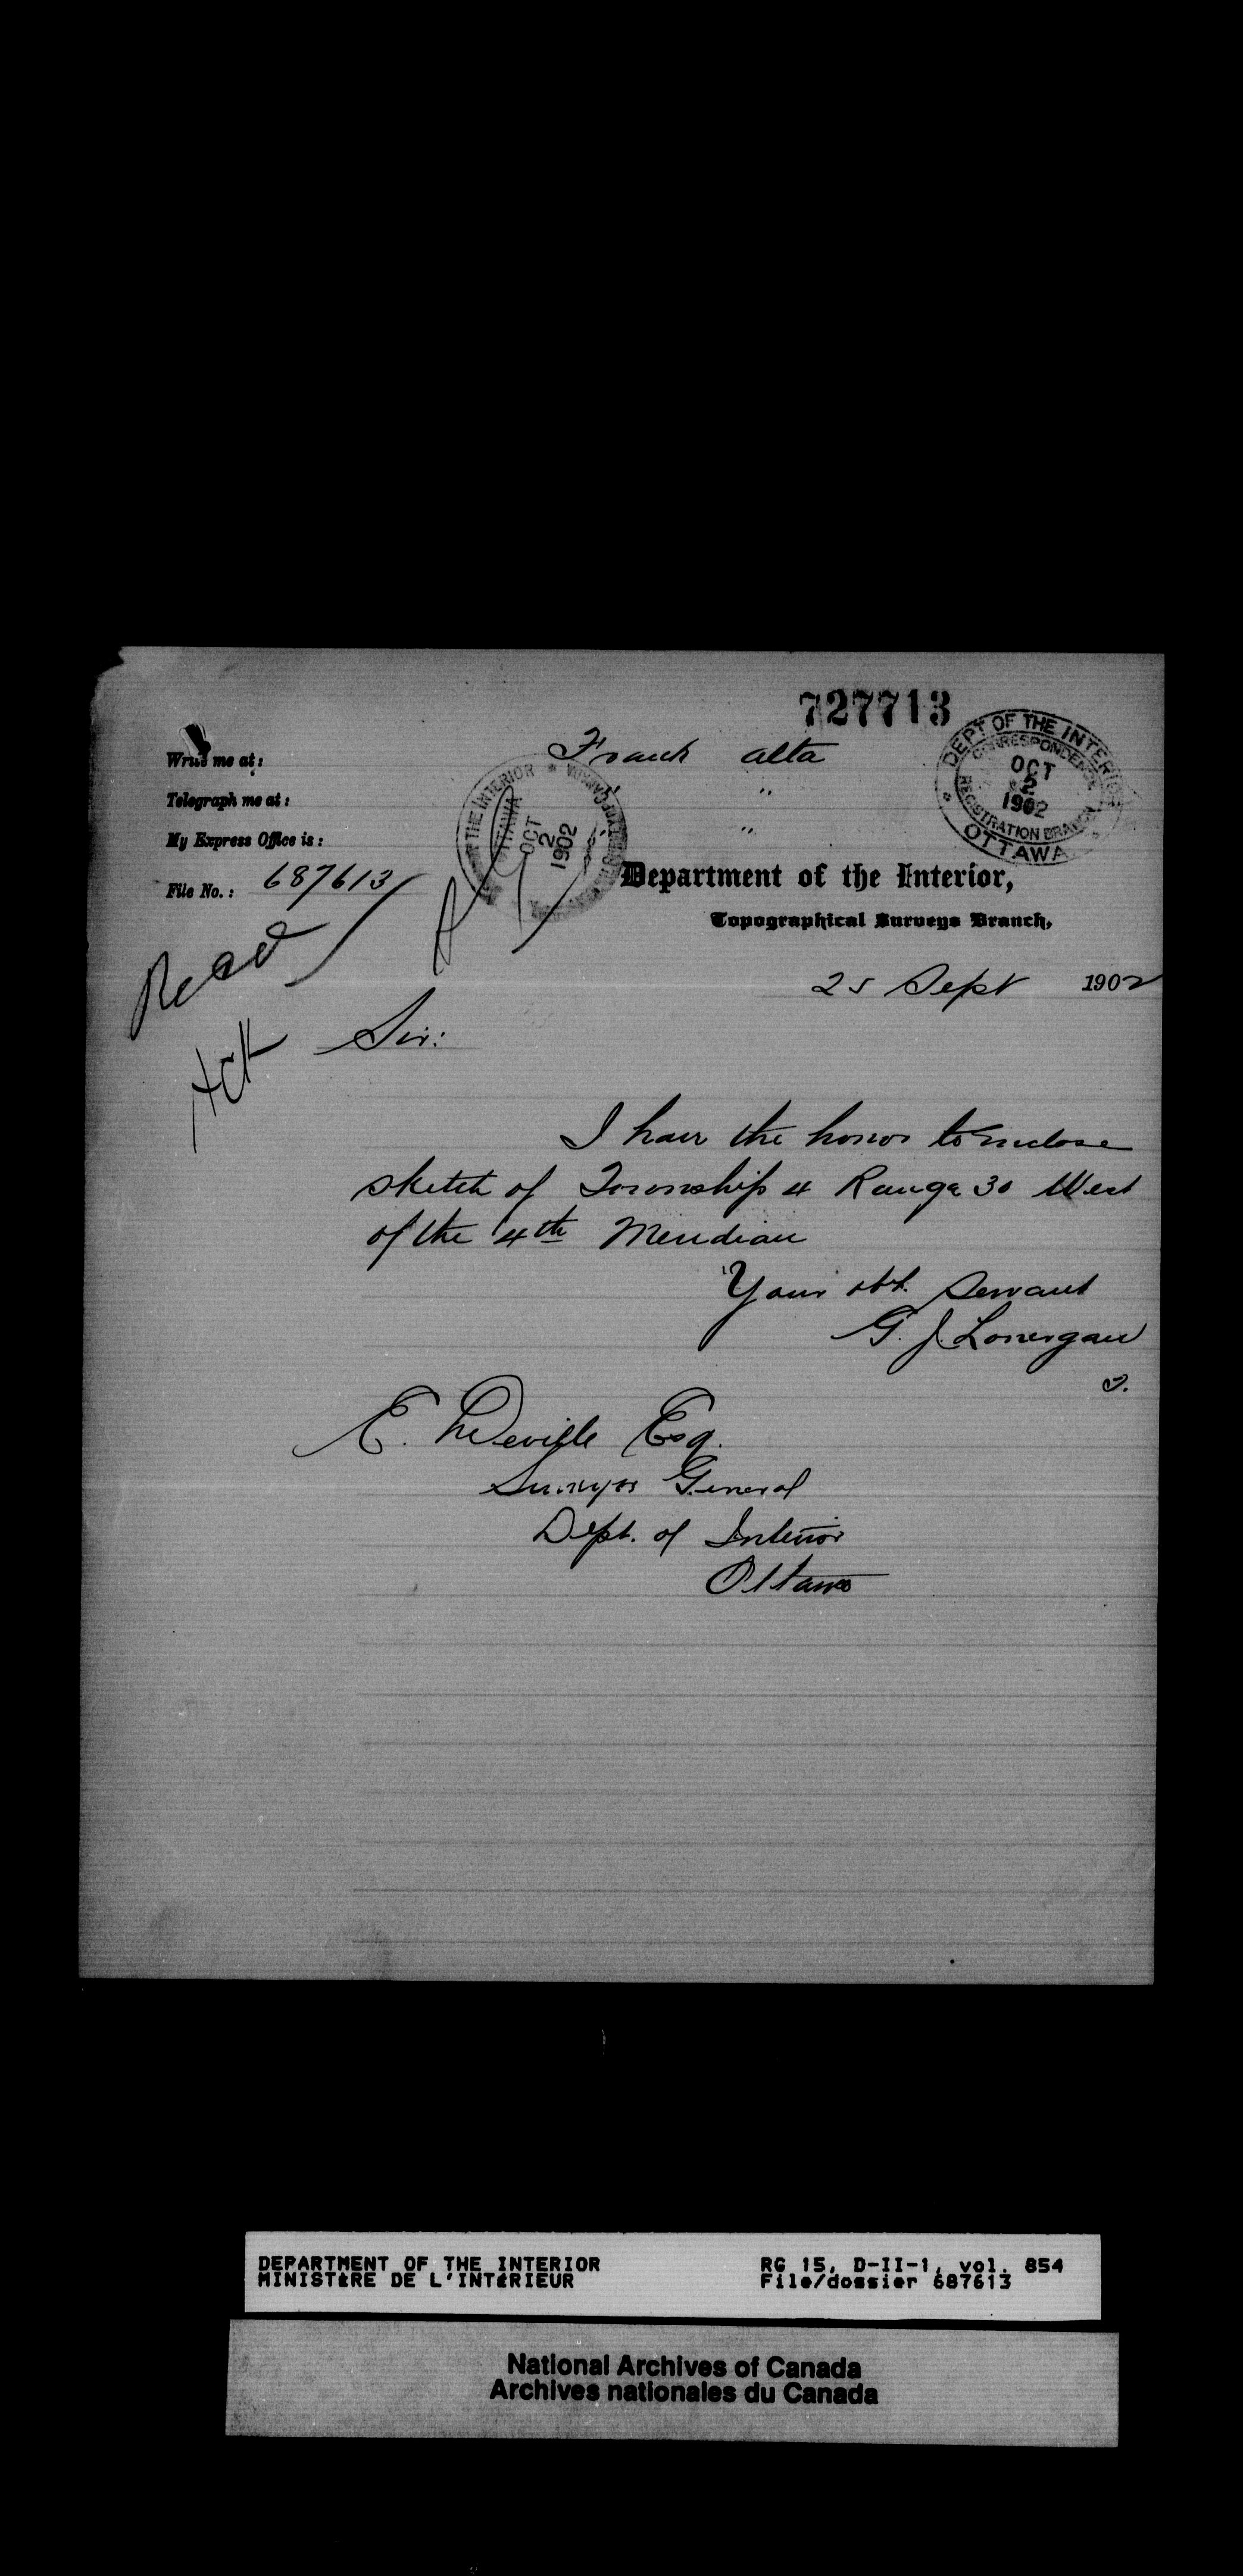 727713
Write me at: Frank Alta
Telegraph me at: "
My Express Office is: "
File No.: 687613
DEPT OF THE INTERIOR
CORRESPONDENCE
OCT
2
1902
REGISTRATION BRANCH
OTTAWA
THE INTERIOR
OTTAWA
OCT
2
1902
Department of the Interior,
Topographical Surveys Branch,
Read
Ack
25 Sept 1902
Sir:
I have the honor to enclose
sketch of Township 4 Range 30 West
of the 4th Meridian
Your obt. Servant
G. J. Lonergan
E. Deville Esq.
Surveyor General
Dept. of Interior
Ottawa
DEPARTMENT OF THE INTERIOR RG 15, D-II-1, vol. 854
MINISTÈRE DE L'INTÉRIEUR File/dossier 687613
National Archives of Canada
Archives nationales du Canada